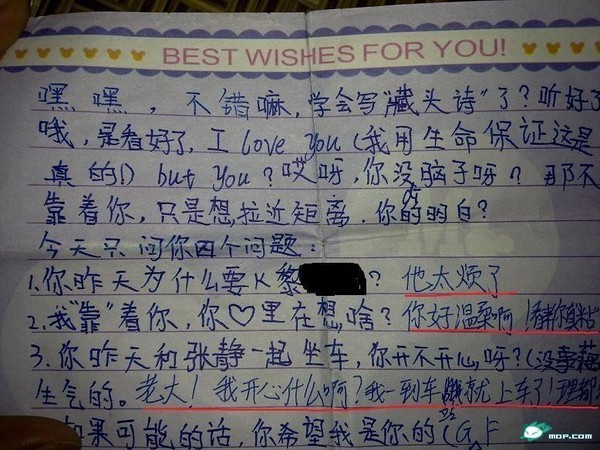 BEST WISHES FOR YOU!
嘿嘿,不错嘛,学会写"藏头诗"了?听好了
哦,是看好了,I love you(我用生命保证这是
真的!) but you?哎呀,你没脑子呀?那不
靠着你,只是想拉近距离.你的明白?
今天只问你四个问题:
1.你昨天为什么要K黎 ? 他太烦了
2.我"靠"着你,你♡里在想啥?你好温柔啊!
3.你昨天和张静一起坐车,你开不开心呀?(没
生气的。老大!我开心什么啊?我一到车 就上车了!理都
如果可能的话,你希望我是你的(G F
MOP.COM